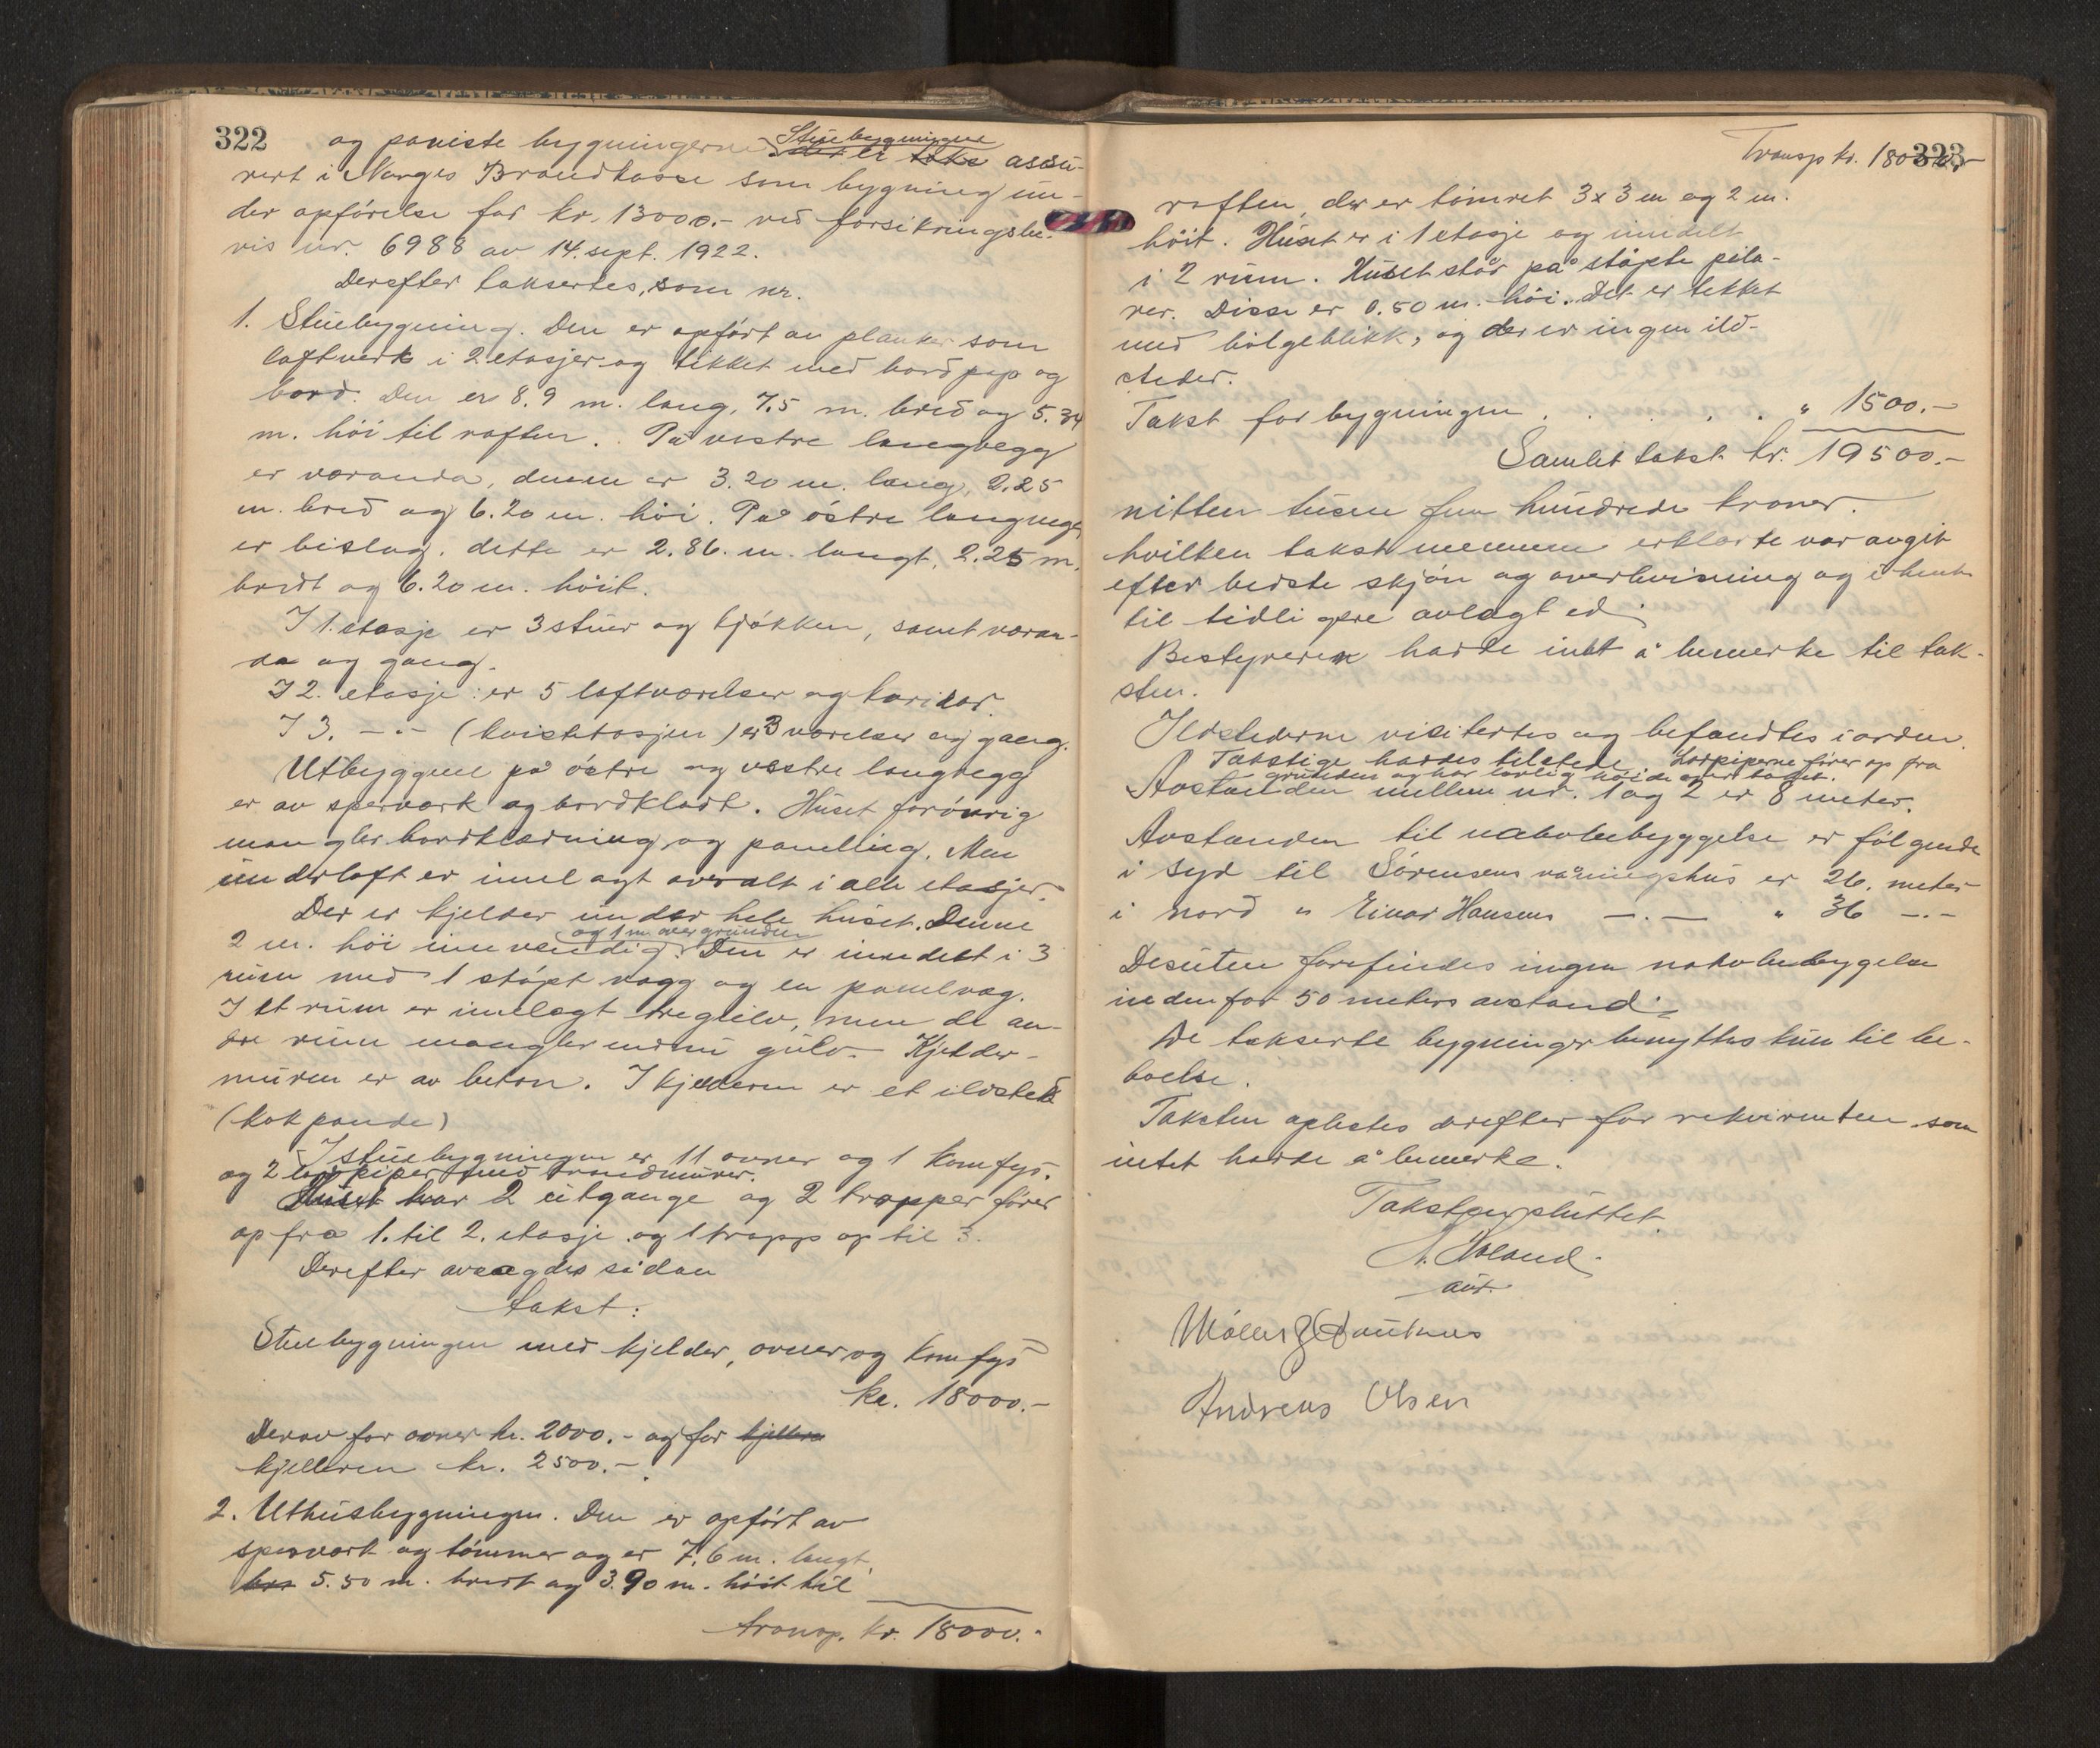 322
og paviste bygningerne. Stuebygningen
er assu-
rert i Norges Brandkasse som bygning un-
der opförelse for kr. 13000.- ved forsikringsbe-
vis nr. 6988 av 14. sept. 1922.
Derefter taksertes, som nr.
1. Stuebygning. Den er opfört av planker som
loftverk i 2 etasjer og tekket med bord pap og
bord. Den er 8.9 m. lang, 7.5 m. bred og 5.34
m. höi til raften. På vestre langvegg
er varanda, denne er 3.20 m. lang, 2.25
m. bred og 6.20 m. höi. På östre langvegg
er bislag. dette er 2.86. m. langt, 2.25 m.
bredt og 6.20 m. höit.
I 1. etasje er 3 stuer og kjökken, samt varan-
da og gang.
I 2. etasje: er 5 loftværelser og koridor.
I 3. -"- (kvistetasjen) er 3 værelser og gang.
Utbyggene på östre og vestre langvegg
er av sperverk og bordklædt. Huset forövrig
mangler bordklædning og paneling. Men
underloft er innlagt overalt i alle etasjer.
Der er kjelder under hele huset. Denne
og 1 m. over grunden
2 m. höi innvendig. Den er inndelt i 3
rum med 1 stöpt vægg og en panelvæg.
I et rum er innlagt tregulv, men de an-
dre rum mangler endnu gulv. Kjelder-
muren er av beton. I kjelderen er et ildsted
(kokpande)
I stuebygningen er 11 ovner og 1 komfyr.
og 2 loppiper med brandmurer.
Huset har 2 utgange og 2 trapper förer
op fra 1. til 2. etasje og 1 trapp op til 3.
Derefter avsagdes sådan
takst:
Stuebygningen med kjelder, ovner og komfyr
kr. 18000.-
Derav for ovner kr. 2000.- og for kjelleren
kjelleren kr. 2500.-.
2. Uthusbygningen. Den er opfört av
sperverk og tömmer og er 7.6 m. langt,
5.50 m. bredt og 3.90 m. höit til
transp. kr. 18000.-
323
Transp kr. 18000.-
raften, der er tömret 3x3 m og 2 m.
höit. Huset er i 1 etasje og inndelt
i 2 rum. Huset står på stöpte pila-
rer. Disse er 0.50 m. höi. Det er tekket
med bölgeblikk, og der er ingen ild-
steder.
Takst for bygningen . . . . . " 1500.-
Samlet takst kr. 19500.-
nitten tusen fem hundrede kroner.
hvilken takst mennene erklærte var avgit
efter bedste skjön og overbevisning og i henh.
til tidligere avlagt ed.
Bestyreren hadde intet å bemerke til tak-
sten.
Ildstederne visitertes og befandtes i orden.
Takstige haddes tilstede. Lopiperne förer op fra
grunden og har lovlig höide over taket.
Avstanden mellem nr. 1 og 2 er 8 meter.
Avstanden til nabobebyggelse er fölgende
i syd til Sörensens våningshus er 26. meter
i nord " Einar Hansens -"- " 36 -"-
Desuten forefindes ingen nabobebygelse
indenfor 50 meters avstand.
De takserte bygninger benyttes kun til be-
boelse.
Taksten oplæstes derefter for rekvirenten som
intet hadde å bemerke.
Takstgen sluttet.
A. Haland.
aut.
Andreas Olsen